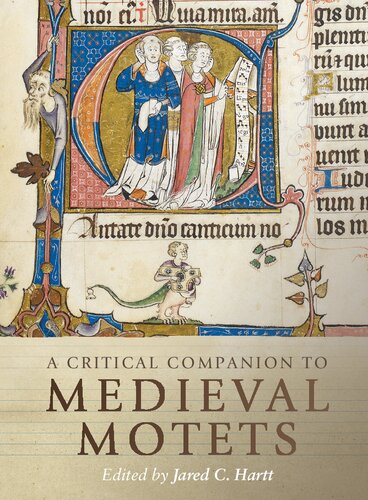 nōi eī: Quia mira.am.
gis di
plenitu
lum
nu sim
uenit
Iude
rum m
los m
Cantate dño canticum no
A CRITICAL COMPANION TO
MEDIEVAL
MOTETS
Edited by Jared C. Hartt